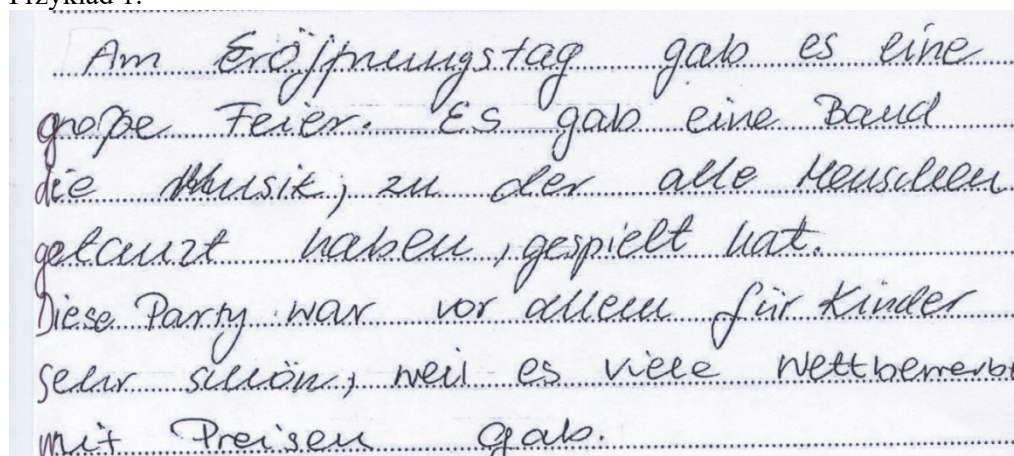 Przykład 1.
Am Eröffnungstag gab es eine
große Feier. Es gab eine Band
die Musik, zu der alle Menschen
getanzt haben, gespielt hat.
Diese Party war vor allem für Kinder
sehr schön, weil es viele Wettbewerbe
mit Preisen gab.